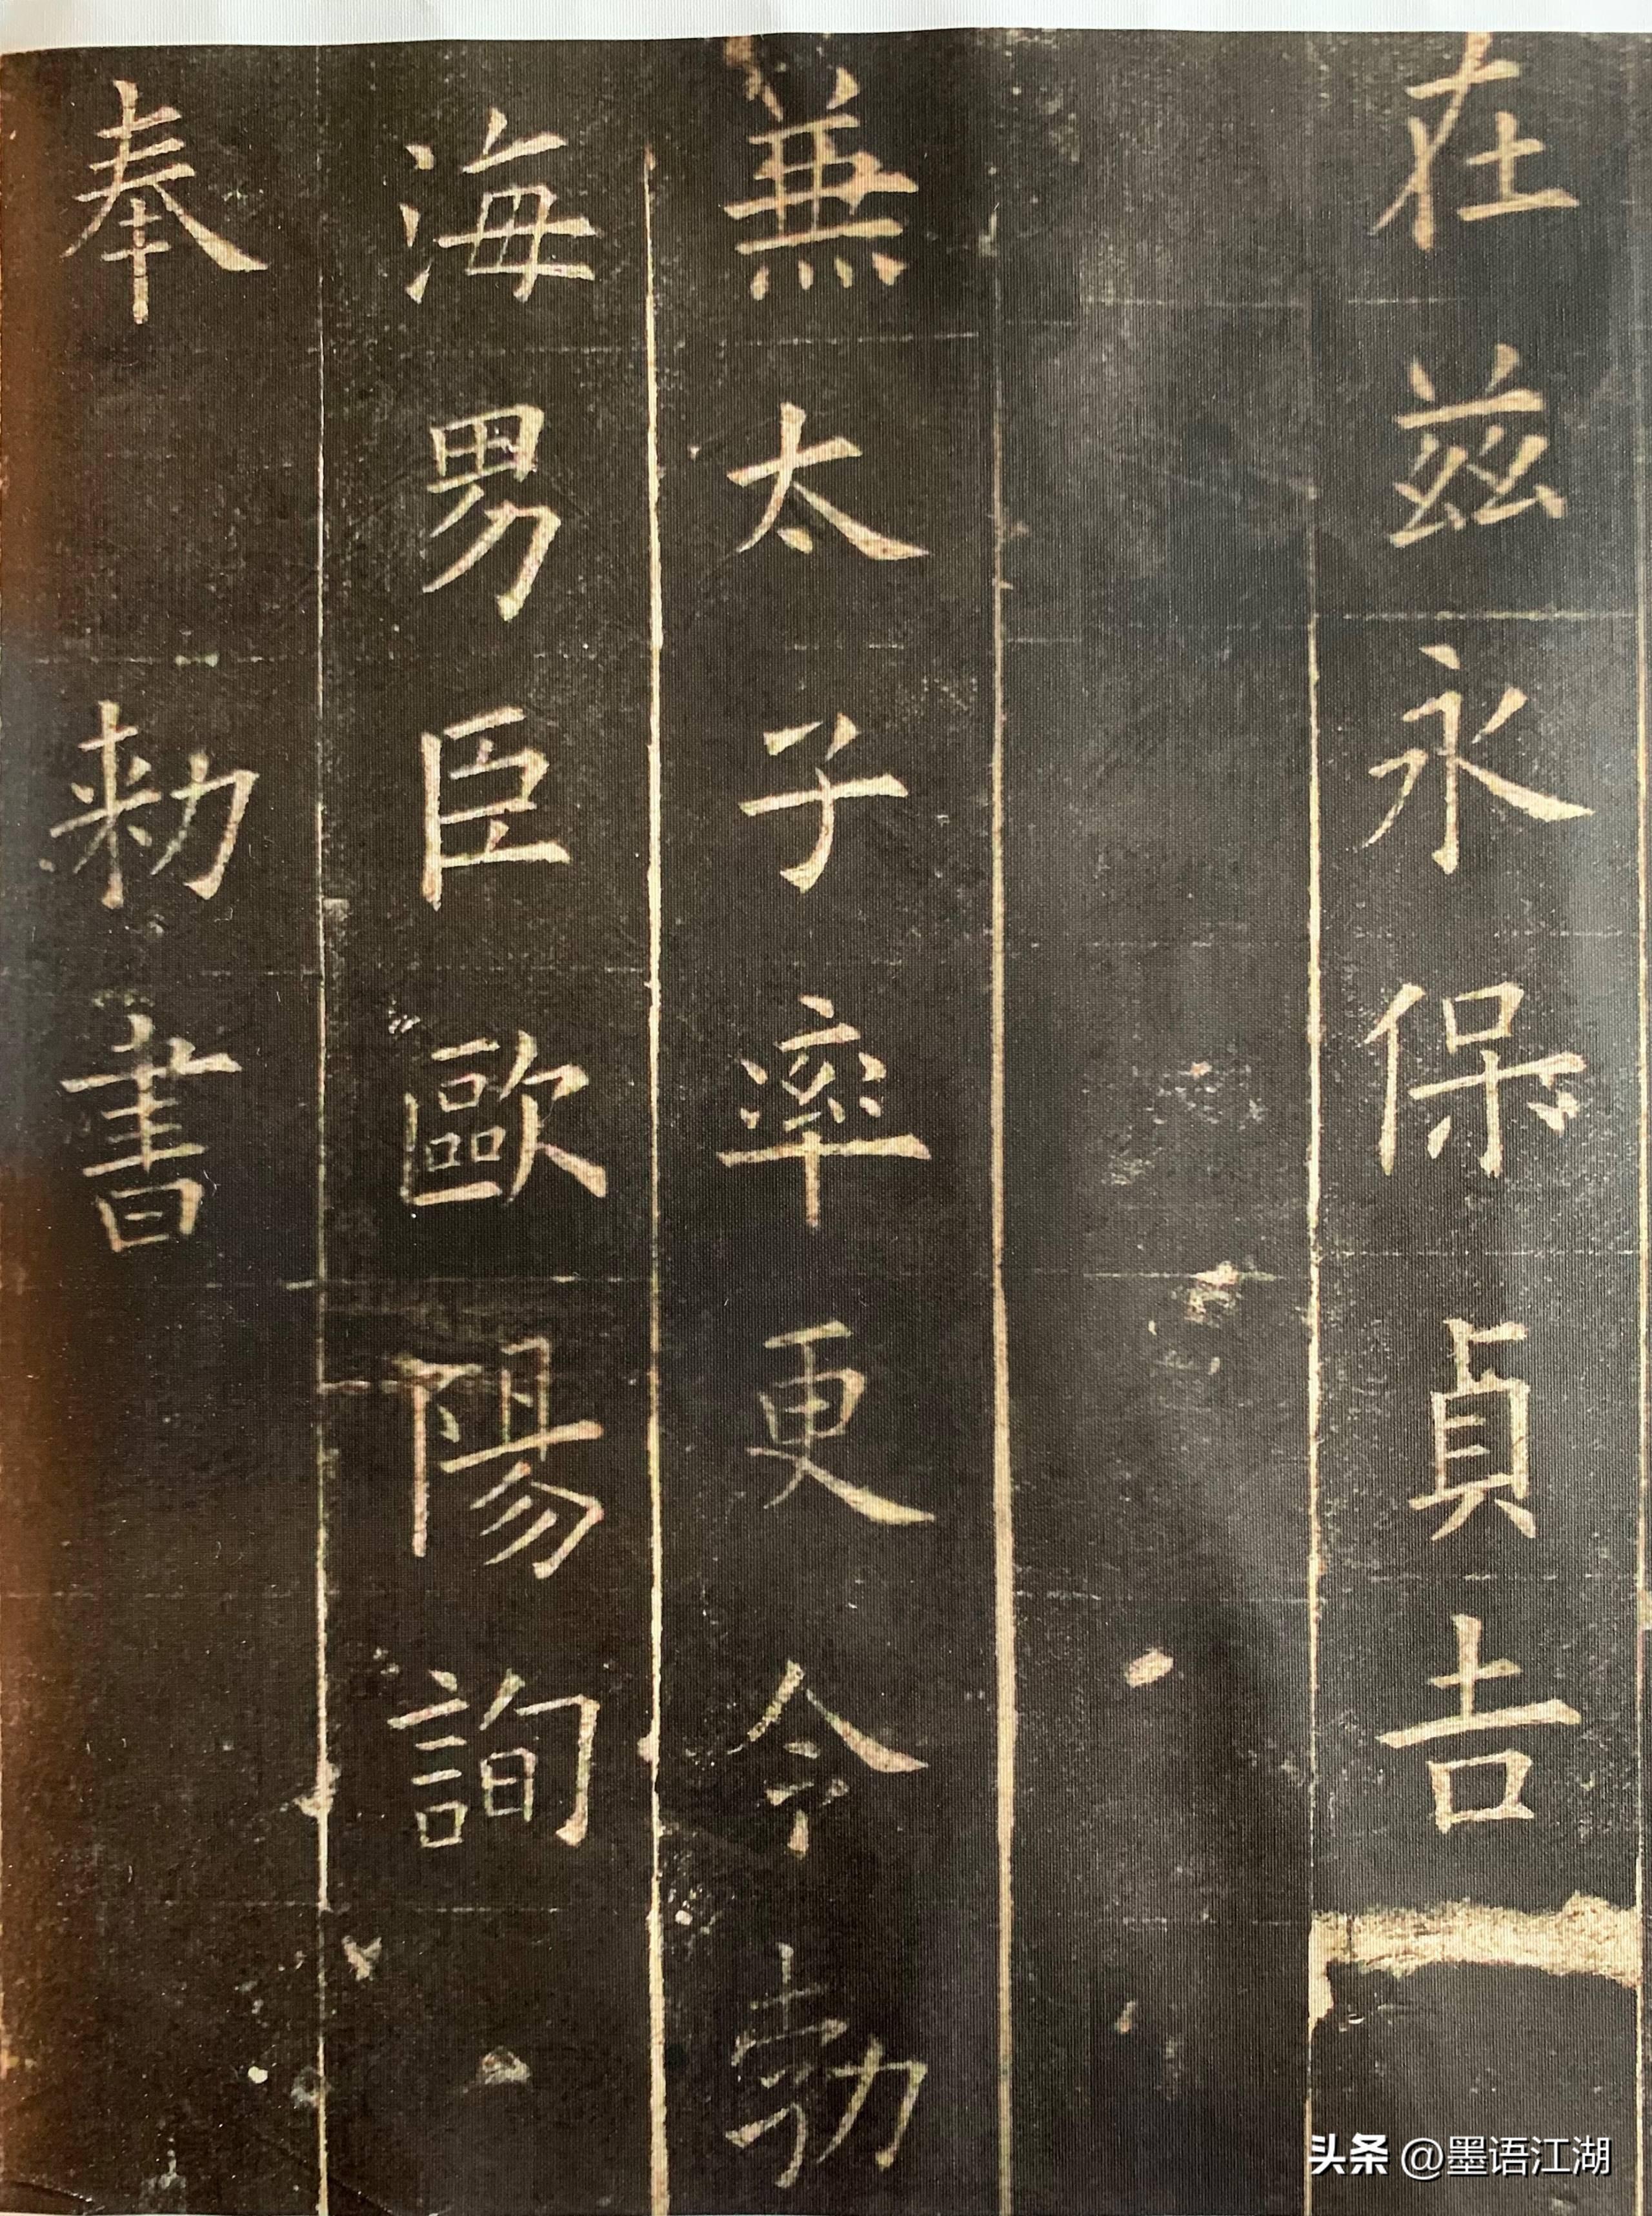 在茲永保貞吉
兼太子率更令勃
海男臣歐陽詢
奉 勑書
头条 @墨语江湖